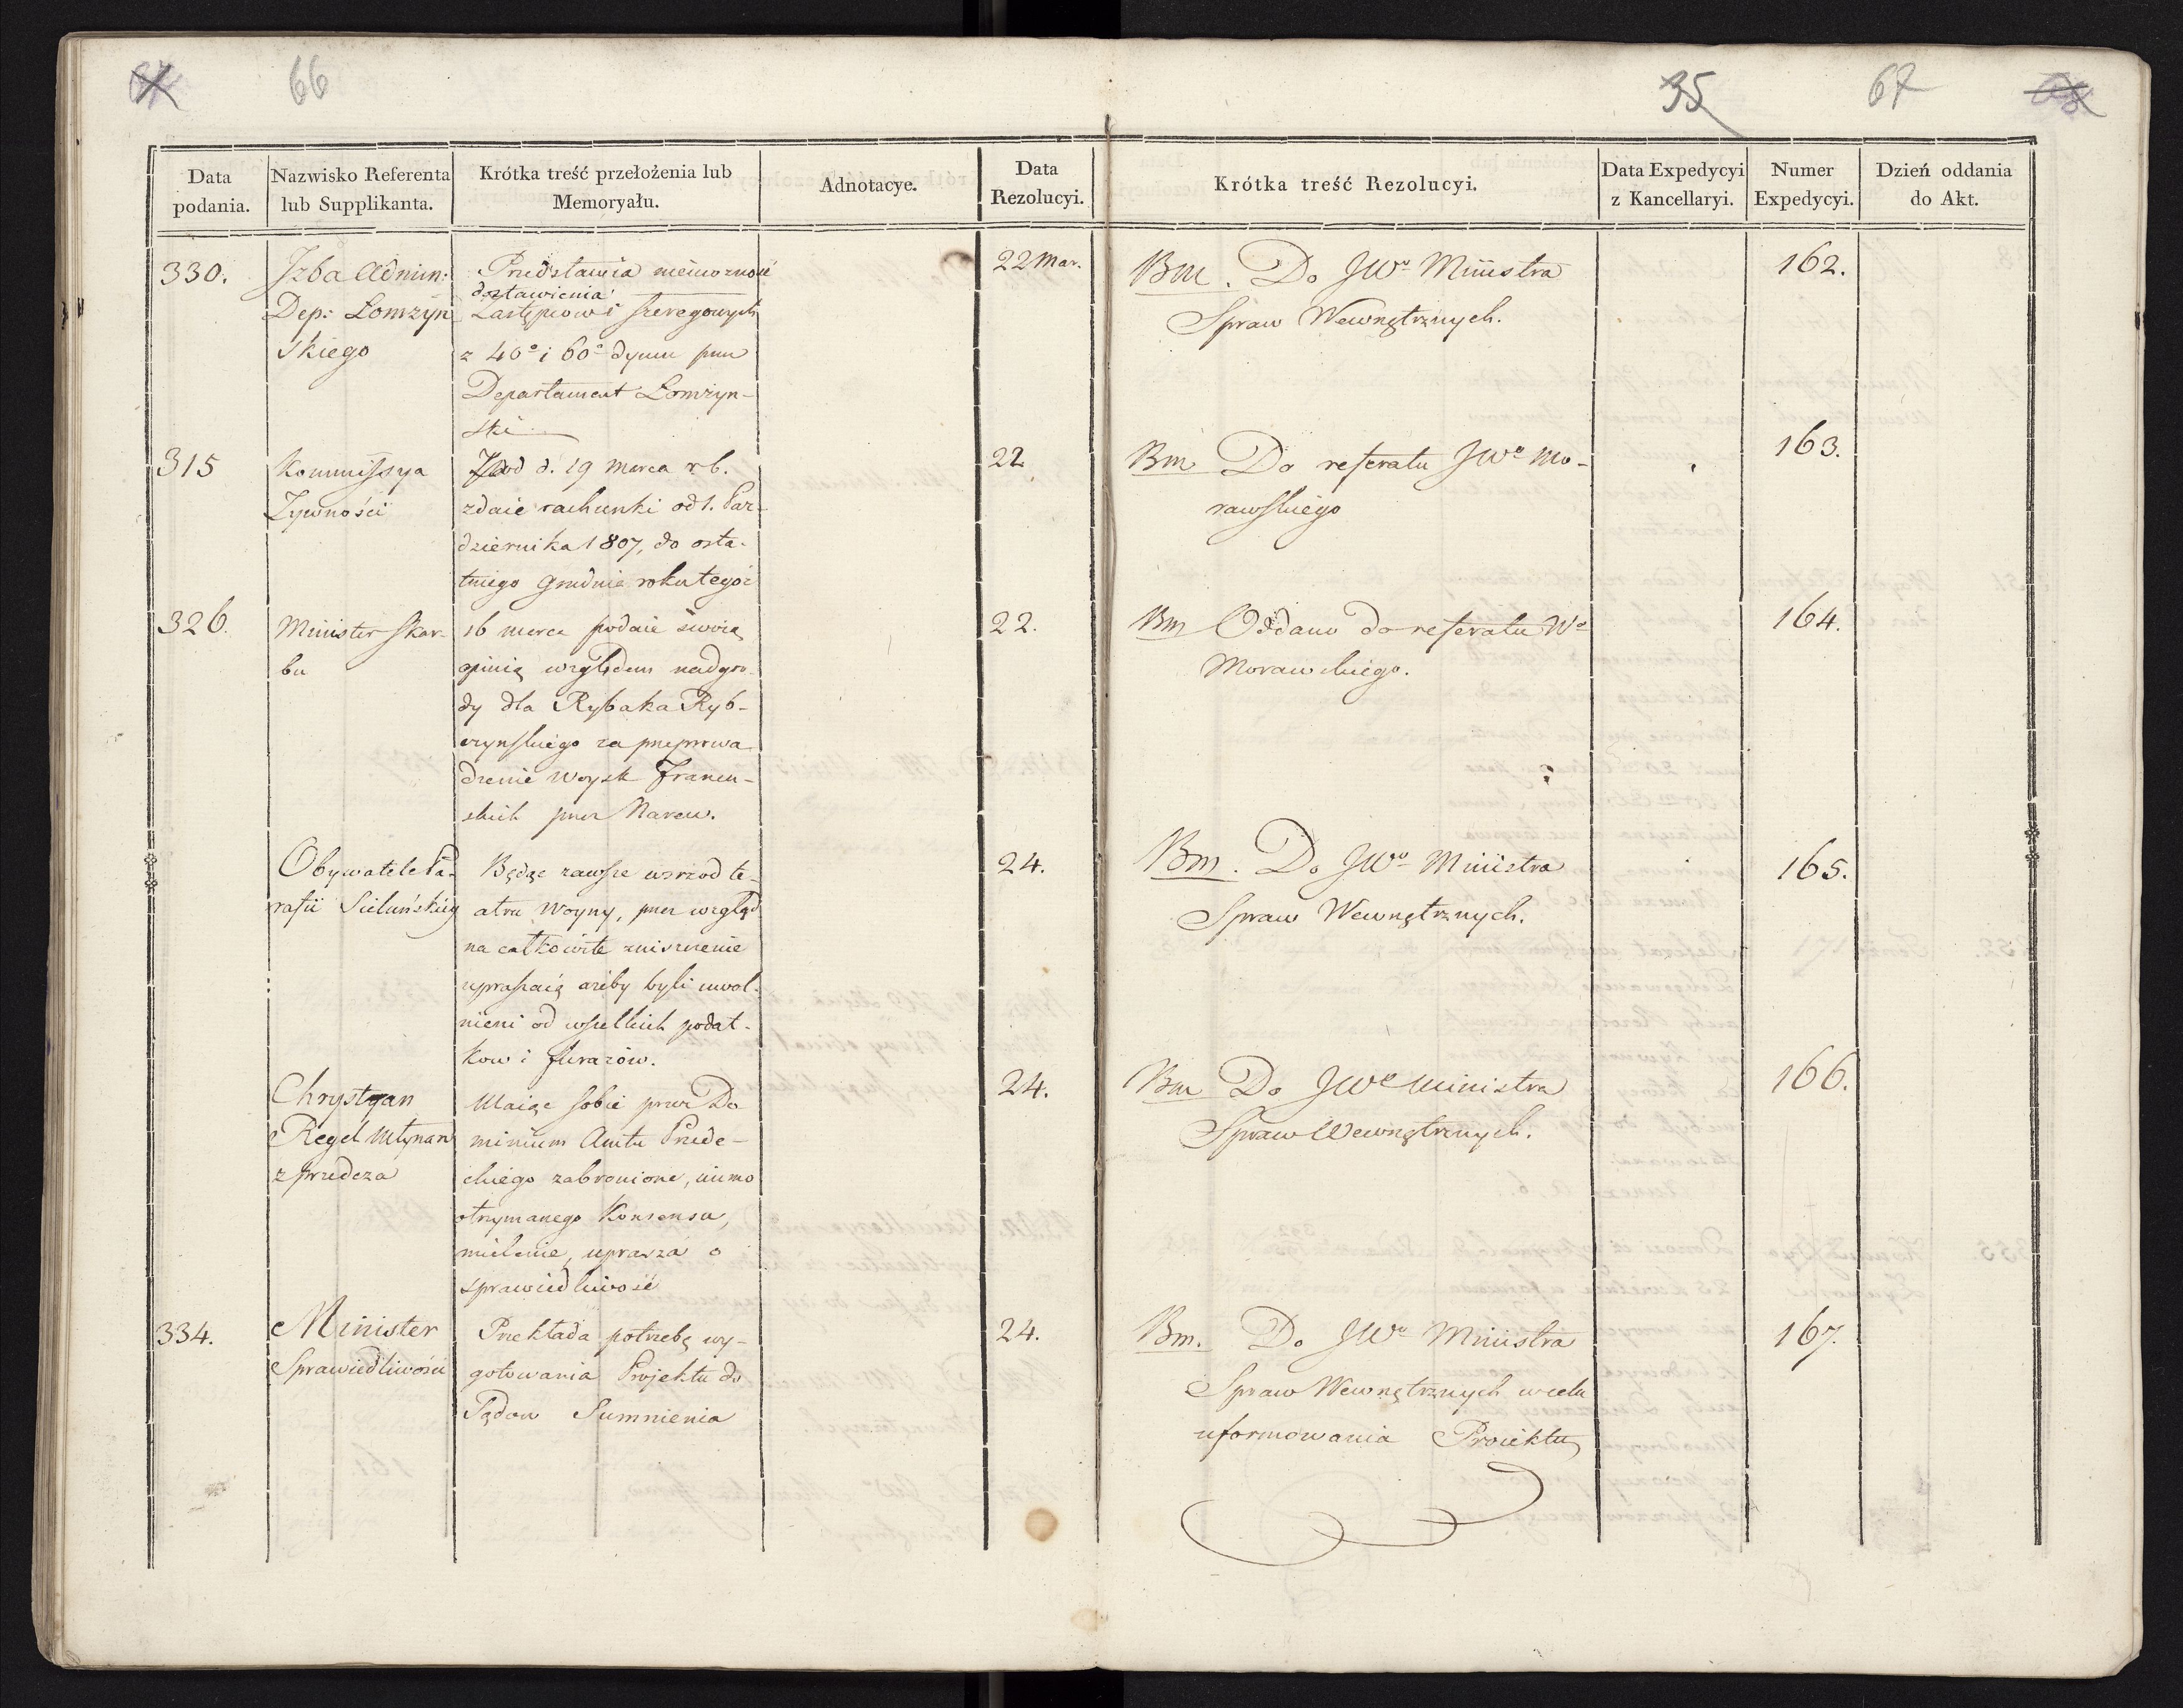 66
35
67
Data podania.
Nazwisko Referenta lub Supplikanta.
Krótka treść przełożenia lub Memoryału.
Adnotacye.
Data Rezolucyi.
Krótka treść Rezolucyi.
Data Expedycyi z Kancellaryi.
Numer Expedycyi.
Dzień oddania do Akt.
330.
Jzba Admin:
Dep: Łomżyn
skiego
Przedstawia niemożność
dostawienia
Zastępców i szeregowych
z 40º i 60º dymu przez
Departament Łomżyn-
ski
22 Mar.
Bm. Do JWº Ministra
Spraw Wewnętrznych.
162.
315
Kommissya
Żywności
pod d. 19 Marca r. b.
zdaie rachunki od 1. Paz-
dziernika 1807, do osta-
tniego Grudnia roku tegoż
22
Bm Do referatu JWº Mo-
rawskiego
163.
326.
Minister Skar-
bu
16 marca podaie swoią
opinią względem nadgro-
dy dla Rybaka Ryb-
czynskiego za przeprowa
dzenie Woysk Francu-
skich przez Narew.
22.
Bm Oddano do referatu Wº
Morawskiego.
164.
Obywatele Pa-
rafii Sieluńskiey
Będąc zawsze wsrzod te-
atru Woyny, przez wzgląd
na całkowite zniszczenie
upraszaią ażeby byli uwol-
nieni od wszelkich podat-
kow i furażów.
24.
Bm. Do JWº Ministra
Spraw Wewnętrznych.
165.
Chrystyan
Regel Młynarz
z Przedcza
Maiąc sobie przez Do
minium Amtu Przede-
ckiego zabronione, mimo
otrzymanego Konsensu,
mielenie, uprasza o
sprawiedliwość
24.
Bm Do JWº Ministra
Spraw Wewnętrznych.
166.
334.
Minister
Sprawiedliwości
Przekłada potrzebę wy-
gotowania Projektu do
Sądow Sumnienia
24.
Bm. Do JWº Ministra
Spraw Wewnętrznych w celu
uformowania Proiektu
167.